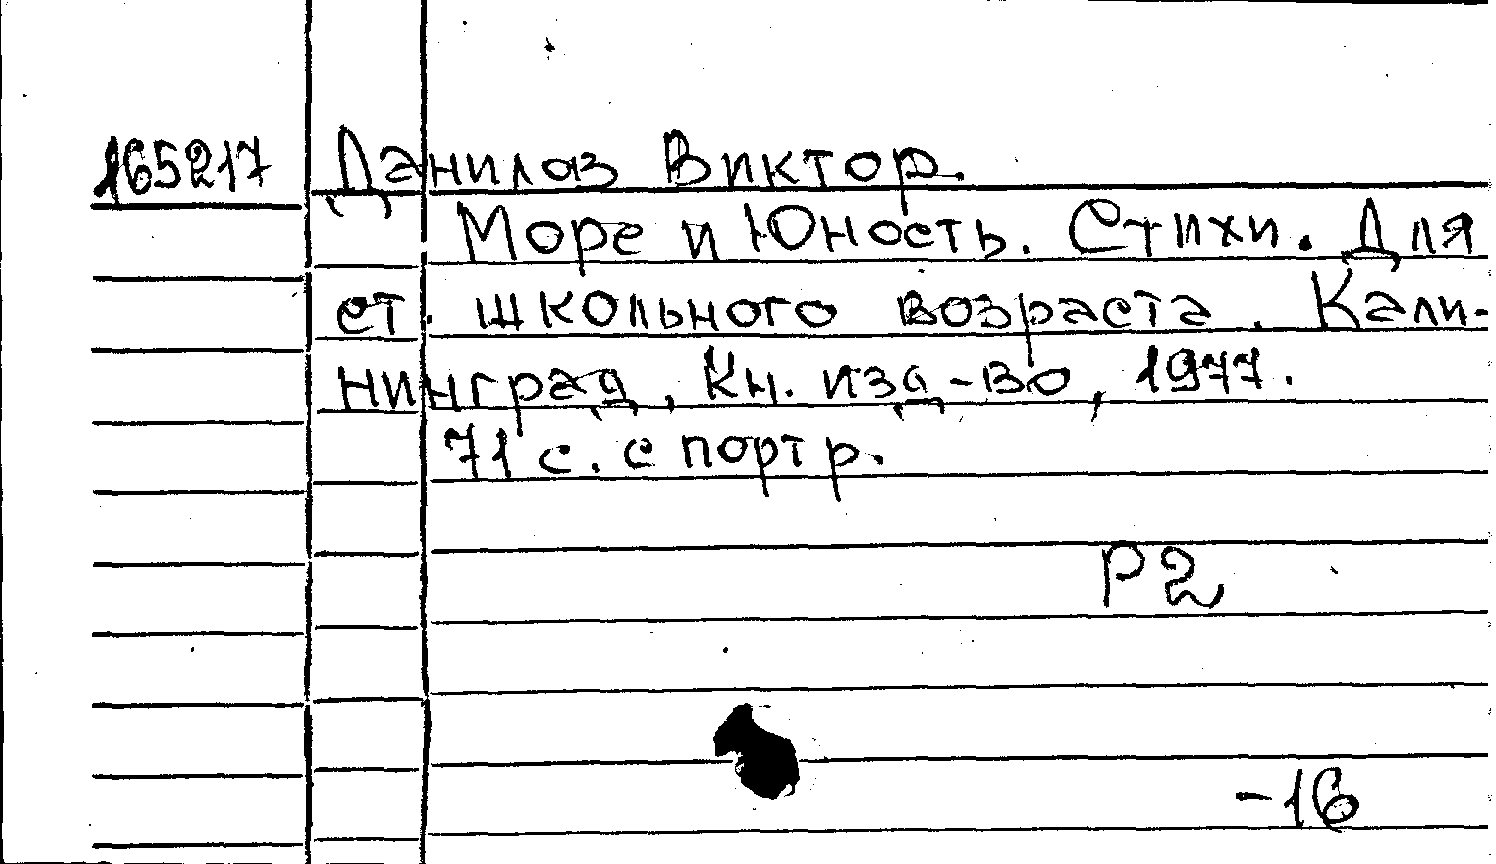 165217 Данилаз Виктор.
Море и Юность. Стихи. Для
ст. школьного возраста. Кали-
нинград, Кн. изд-во, 1977.
71 с. с портр.
Р2
-16